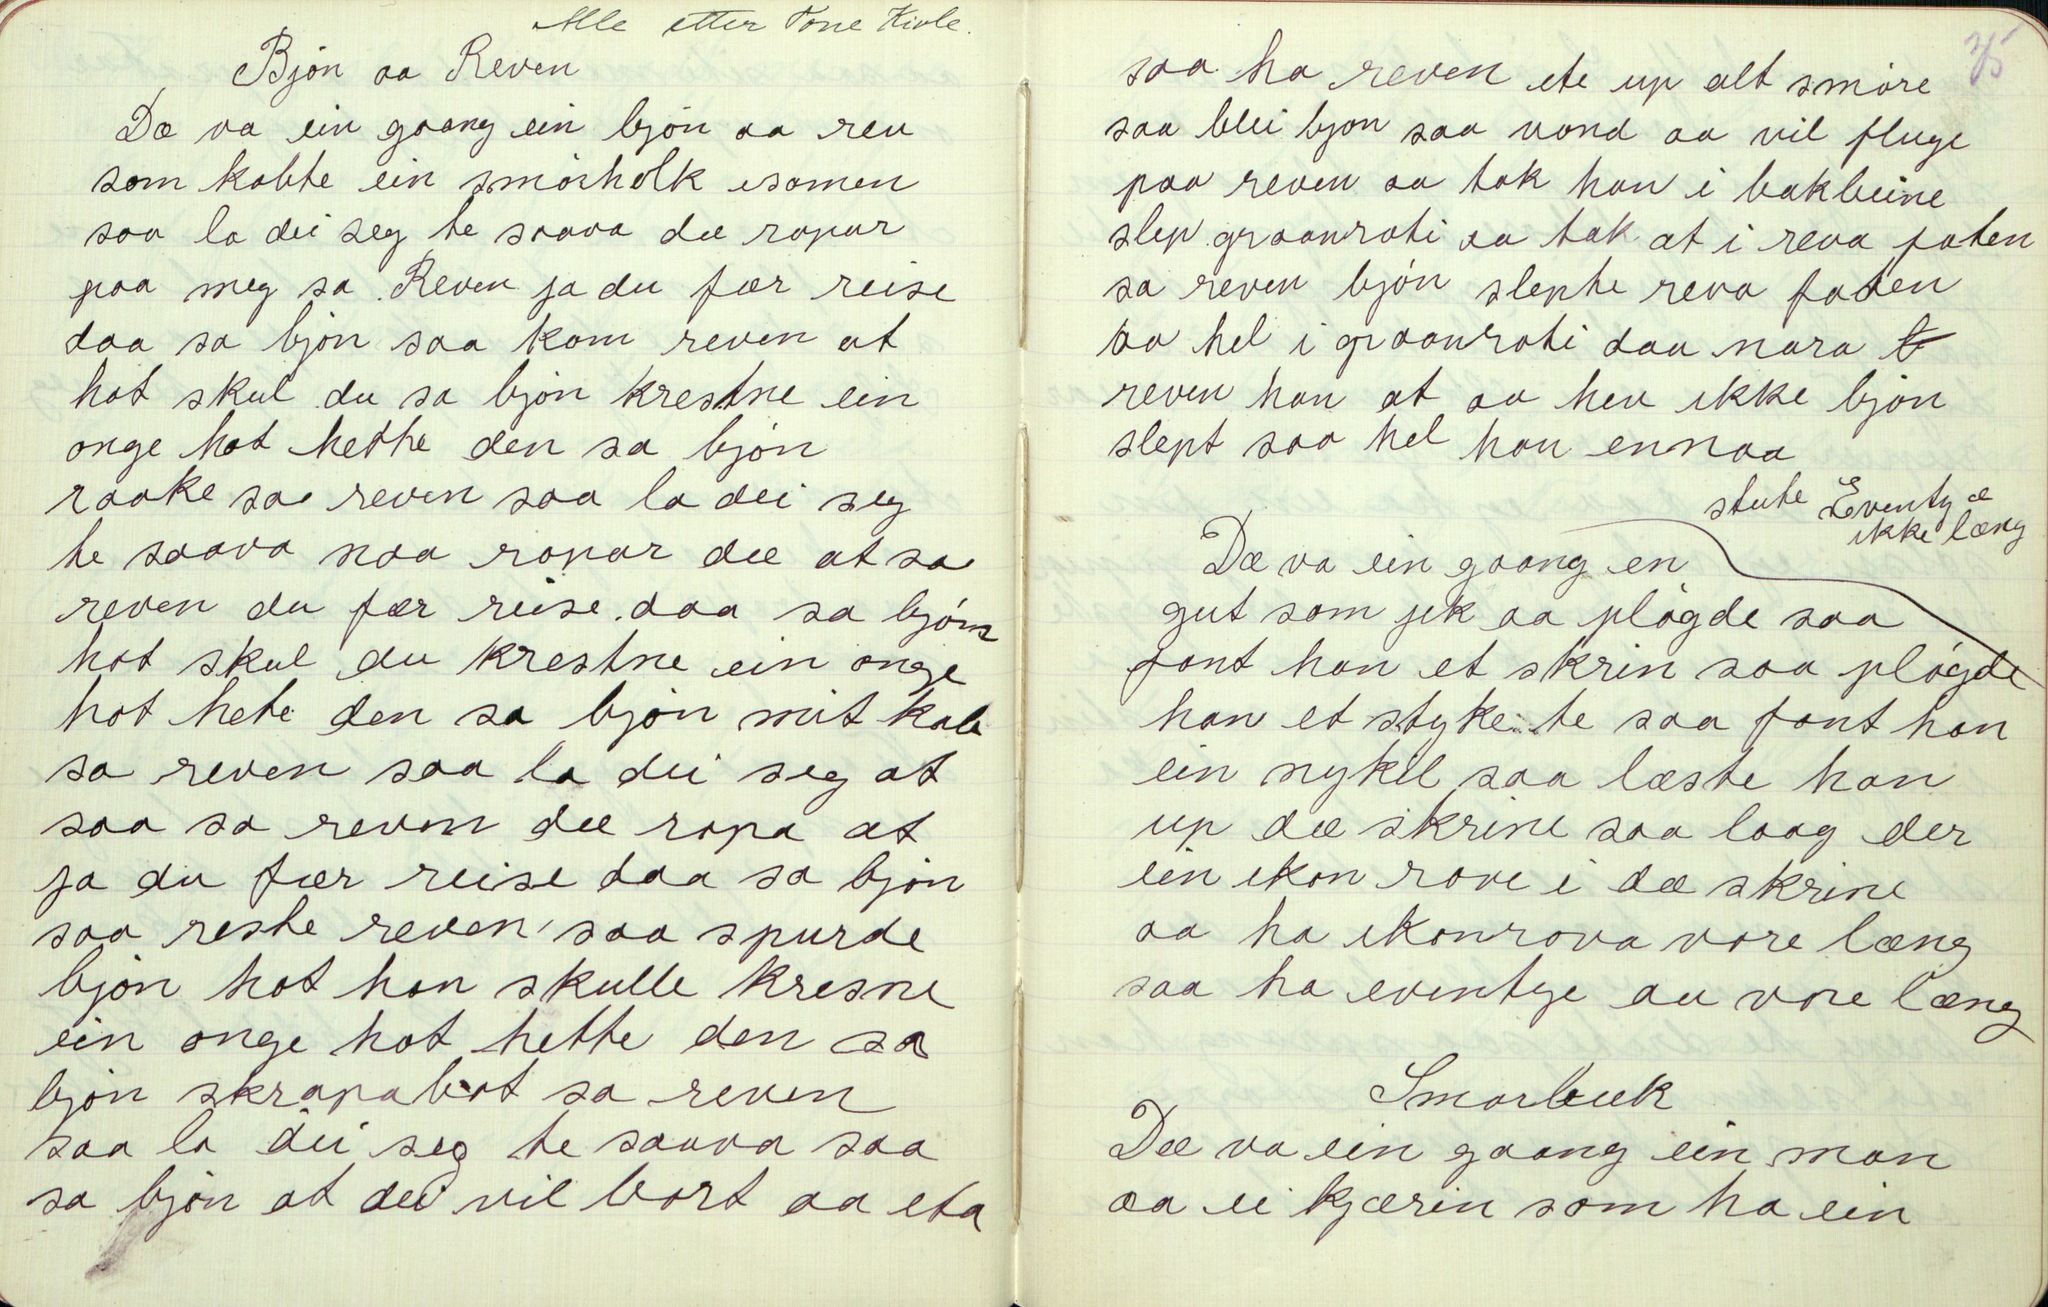 Alle etter Tone Kivle.
Bjón aa Reven
Dæ va ein gaang ein bjón aa rev
som kabte ein smórholk isamen
saa la dei seg te saava dæ ropar
paa meg sa Reven ja du fær reise
daa sa bjón saa kom reven at
hot skul du sa bjón krestne ein
onge hot hette den sa bjón
raake sa reven saa la dei seg
te saava naa ropar dæ at sa
reven du fær reise daa sa bjón
hot skul du krestne ein onge
hot hete den sa bjón mit kale
sa reven saa la dei seg at
saa sa reven dæ ropa at
ja du fær reise daa sa bjón
saa reste reven saa spurde
bjón hot han skulle kresne
ein onge hot hette den sa
bjón skrapabot sa reven
saa la dei seg te saava saa
sa bjón at dei vil bort aa eta
75
saa ha reven ete up alt smóre
saa blei bjon saa vond aa vil fluge
paa reven aa tok han i bakbeine
slep graanroti aa tak at i reva foten
sa reven bjón slepte reva foten
aa hel i graanroti daa nara
reven han at aa hev ikke bjón
slept saa hel han ennaa
stute Eventy æ
ikke læng
Dæ va ein gaang en
gut som jek aa plógde saa
font han et skrin saa plógde
han et styke te saa font han
ein nykel saa læste han
up dæ skrine saa laag der
ein ikon rove i dæ skrine
aa ha ikonrova vore læng
saa ha eventye au vore læng
Smorbuk
Dæ va ein gaang ein man
aa ei kjærin som ha ein